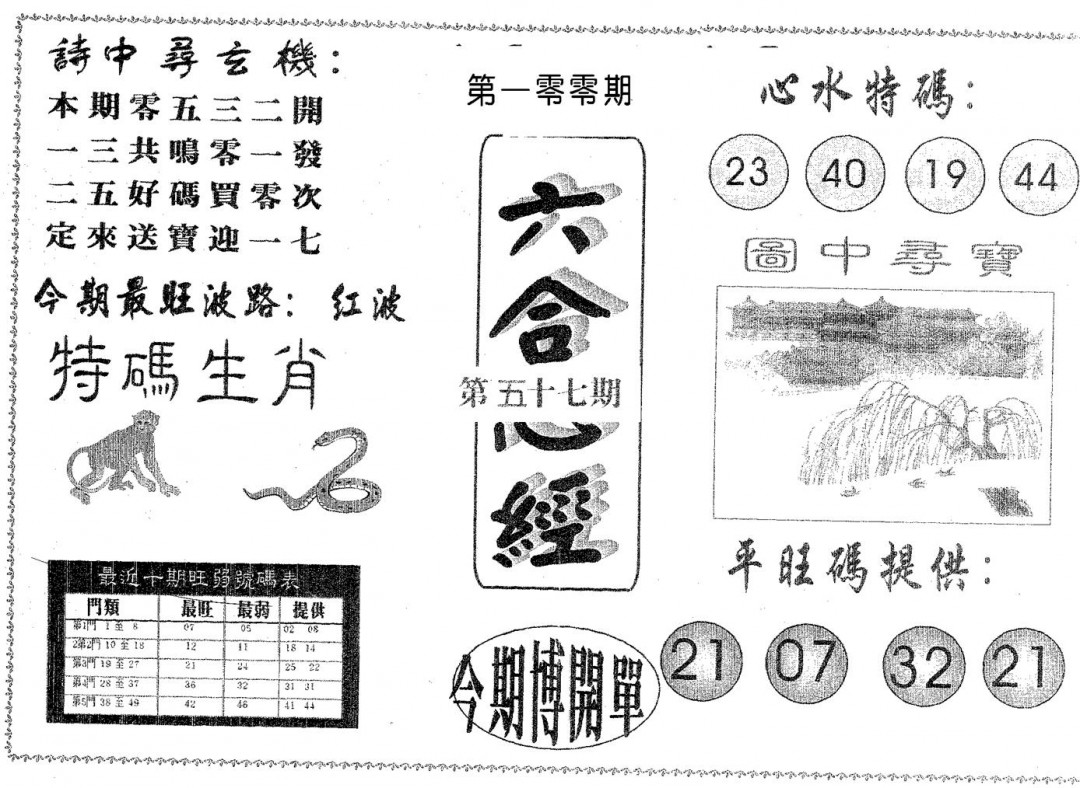 詩中尋玄機：
本期零五三二開
一三共鳴零一發
二五好碼買零次
定來送寶迎一七
今期最旺波路：紅波
特碼生肖
最近十期旺弱號碼表
門類 最旺 最弱 提供
第1門 1至8 07 05 02 08
2第2門 10至18 12 11 18 14
第3門 19至27 21 24 25 22
第4門 28至37 36 32 31 31
第5門 38至49 42 46 41 44
第一零零期
六合心經
第五十七期
今期博開單
心水特碼：
23 40 19 44
圖中尋寶
平旺碼提供：
21 07 32 21